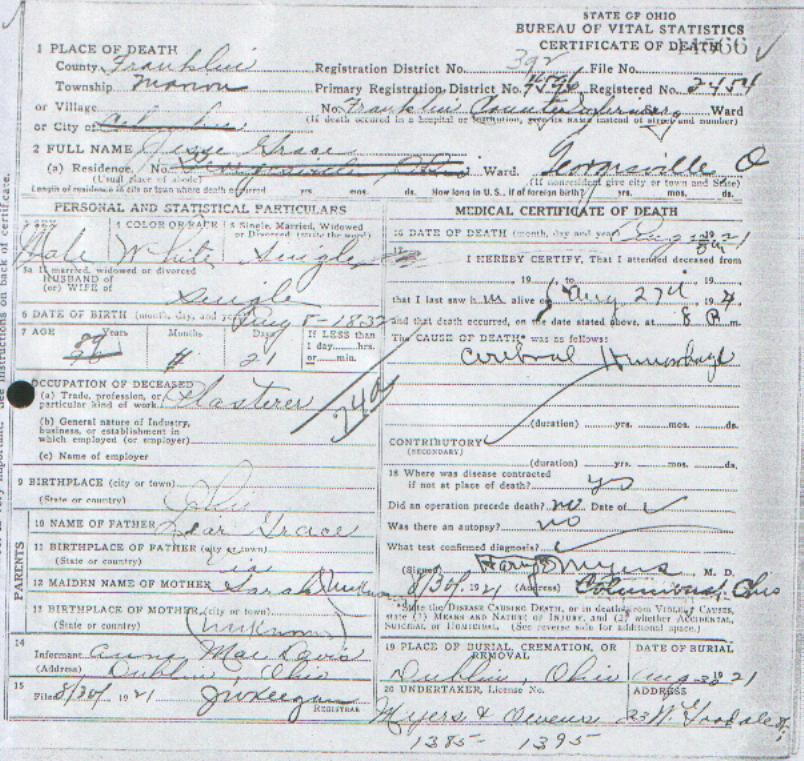 STATE OF OHIO
BUREAU OF VITAL STATISTICS
CERTIFICATE OF DEATH
1 PLACE OF DEATH
County Franklin Registration District No. 392 File No.
Township Marion Primary Registration District No. Registered No. 2454
or Village No. Franklin County Ward
or City of (If death occurred in a hospital or institution, give its name instead of street and number)
2 FULL NAME Jesse Grace
(a) Residence. No. Ward. Georgesville O
(Usual place of abode) (If nonresident give city or town and State)
Length of residence in city or town where death occurred yrs. mos. ds. How long in U.S., if of foreign birth? yrs. mos. ds.
PERSONAL AND STATISTICAL PARTICULARS
3 SEX 4 COLOR OR RACE 5 Single, Married, Widowed or Divorced (write the word)
Male White Single
5a If married, widowed or divorced
HUSBAND of
(or) WIFE of
Single
6 DATE OF BIRTH (month, day, and year) Aug 8-1832
7 AGE Years Months Days If LESS than
89 21 1 day, hrs.
or min.
OCCUPATION OF DECEASED
(a) Trade, profession, or
particular kind of work Plasterer
74a
(b) General nature of Industry,
business, or establishment in
which employed (or employer)
(c) Name of employer
9 BIRTHPLACE (city or town)
(State or country) Ohio
PARENTS
10 NAME OF FATHER Grace
11 BIRTHPLACE OF FATHER (city or town)
(State or country)
12 MAIDEN NAME OF MOTHER Sarah Unknown
13 BIRTHPLACE OF MOTHER (city or town)
(State or country) (Unknown)
14
Informant Anna Mae Davis
(Address) Dublin, Ohio
15
Filed 8/30/ 1921 J W Keegan
REGISTRAR
MEDICAL CERTIFICATE OF DEATH
16 DATE OF DEATH (month, day and year) Aug 1921
17
I HEREBY CERTIFY, That I attended deceased from
19 to 19
that I last saw h m alive on Aug 27th, 19
and that death occurred, on the date stated above, at 8 P m.
The CAUSE OF DEATH* was as follows:
Cerebral Hemorhage
(duration) yrs. mos. ds.
CONTRIBUTORY
(SECONDARY)
(duration) yrs. mos. ds.
18 Where was disease contracted
if not at place of death? yes
Did an operation precede death? no Date of
Was there an autopsy? no
What test confirmed diagnosis?
(Signed) Harry Myers M. D.
8/30/ 1921 (Address) Columbus, Ohio
*State the DISEASE CAUSING DEATH, or in deaths from VIOLENT CAUSES,
state (1) MEANS AND NATURE OF INJURY, and (2) whether ACCIDENTAL,
SUICIDAL or HOMICIDAL. (See reverse side for additional space.)
19 PLACE OF BURIAL, CREMATION, OR REMOVAL DATE OF BURIAL
Dublin, Ohio Aug 30 1921
20 UNDERTAKER, License No. ADDRESS
Myers & Owens 23 W. Goodale St.
1385- 1395